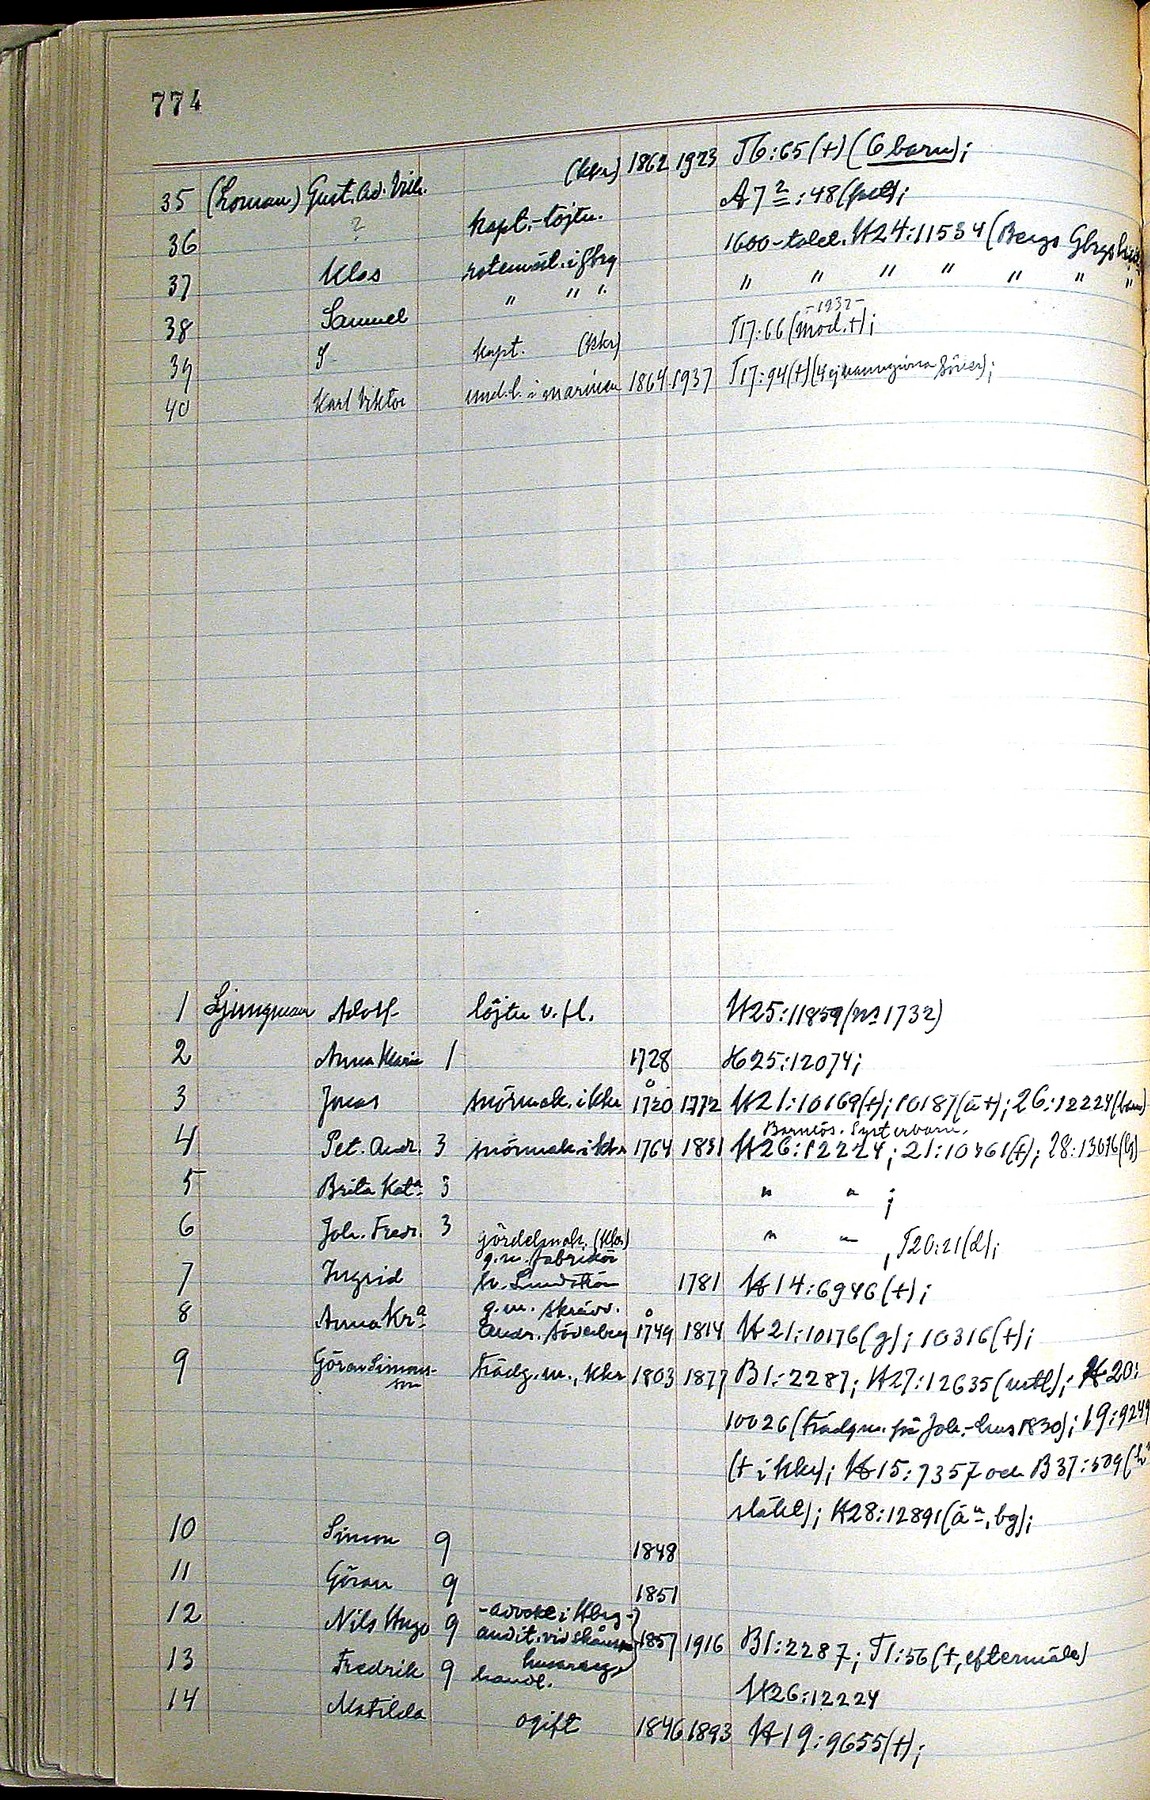 774
35 (Loman) Gust. Ad. Vilh. (kkr) 1862 1923 T6:65(+) (6 barn);
36 ? kapt.-löjtn. A7²:48(fel);
37 Klas rotemäst. i Gbrg 1600-talet. K24:11534 (Bergs Gbrgs
38 Samuel " " " " " " " " " "
-1932-
39 S kapt. (kkr) T17:66(mod.+);
40 Karl Viktor und.l. i marinen 1864 1937 T17:94(+)(4 ej namngivna
1 Ljungman Adolf löjtn v. fl. K25:11859(nr 1732)
2 Anna Maria 1 1728 K25:12074;
3 Jonas snörmak. i kkr 1720 1772 K21:10169(+); 10187(ä+); 26:12224(barn)
Barnlös. Systerbarn.
4 Pet. Andr. 3 snörmak. i kkr 1764 1831 K26:12224; 21:10461(+); 28:13016(bg)
5 Brita Kata 3 " " ;
6 Joh. Fredr. 3 gördelmak. (kkr) " " , T20:21(d);
g.m. fabrikör
7 Ingrid sv. Lundström 1781 K14:6946(+);
g.m. skrädd.
8 Anna Kra Andr. Söderberg 1749 1814 K21:10176(g); 10316(+);
9 Göran Simons- trädg.m., kkr 1803 1877 B1:2287; K27:12635(vitl); K20:
son
10026(trädgm. på Joh.-hus 1830); 19:9249
(+ i kkr); K15:7357 och B37:509(
släkt); K28:12891(än, bg);
10 Simon 9 1848
11 Göran 9 1851
12 Nils Hugo 9 -advokat i Hbrg-
audit. vid skånska 1857 1916 B1:2287; T1:56(+, eftermäle)
husarreg.
13 Fredrik 9 handl. K26:12224
14 Matilda ogift 1846 1893 K19:9655(+);